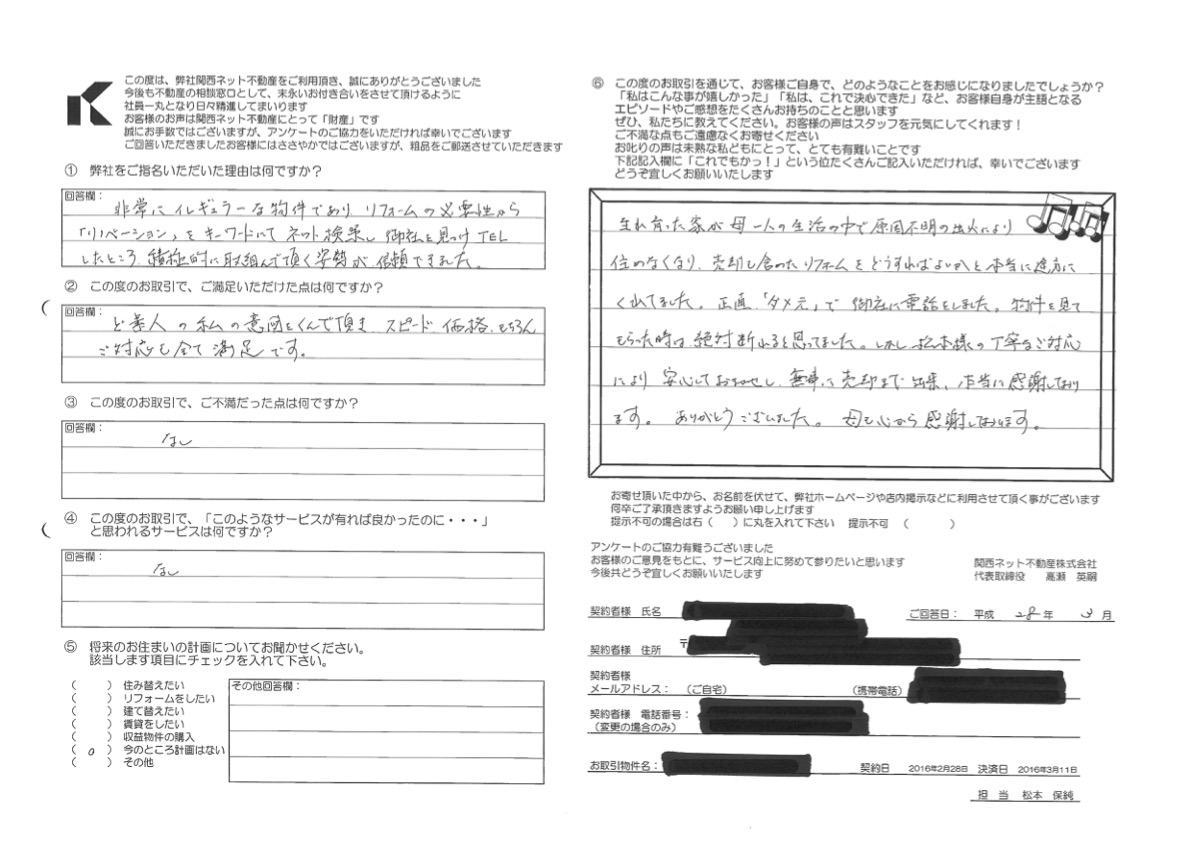 この度は、弊社関西ネット不動産をご利用頂き、誠にありがとうございました
今後も不動産の相談窓口として、末永いお付き合いをさせて頂けるように
社員一丸となり日々精進してまいります
お客様のお声は関西ネット不動産にとって「財産」です
誠にお手数ではございますが、アンケートのご協力をいただければ幸いでございます
ご回答いただきましたお客様にはささやかではございますが、粗品をご郵送させていただきます
① 弊社をご指名いただいた理由は何ですか？
回答欄：
非常にイレギュラーな物件であり リフォームの必要性から
「リノベーション」をキーワードにて ネット検索し 御社を見つけ TEL
したところ 積極的に取組んで頂く姿勢が 信頼できました。
② この度のお取引で、ご満足いただけた点は何ですか？
回答欄：
ど素人の私の意図をくんで頂き スピード 価格 もちろん
ご対応も全て満足です。
③ この度のお取引で、ご不満だった点は何ですか？
回答欄：
なし
④ この度のお取引で、「このようなサービスが有れば良かったのに・・・」
と思われるサービスは何ですか？
回答欄：
なし
⑤ 将来のお住まいの計画についてお聞かせください。
該当します項目にチェックを入れて下さい。
（ ） 住み替えたい
（ ） リフォームをしたい
（ ） 建て替えたい
（ ） 賃貸をしたい
（ ） 収益物件の購入
（ o ） 今のところ計画はない
（ ） その他
その他回答欄：
⑥ この度のお取引を通じて、お客様ご自身で、どのようなことをお感じになりましたでしょうか？
「私はこんな事が嬉しかった」「私は、これで決心できた」など、お客様自身が主語となる
エピソードやご感想をたくさんお持ちのことと思います
ぜひ、私たちに教えてください。お客様の声はスタッフを元気にしてくれます！
ご不満な点もご遠慮なくお寄せください
お叱りの声は未熟な私どもにとって、とても有難いことです
下記記入欄に「これでもかっ！」という位たくさんご記入いただければ、幸いでございます
どうぞ宜しくお願いいたします
生れ育った家が 母一人の生活の中で 原因不明の出火により
住めなくなり、売却も含めたリフォームをどうすればよいかと本当に途方に
くれてました。正直「ダメ元」で御社に電話をしました。物件を見て
もらった時は 絶対断れると思ってました。しかし松本様の丁寧なご対応
により 安心しておまかせし、無事に売却まで出来、本当に感謝しており
ます。 ありがとうございました。 母も心から感謝しております。
お寄せ頂いた中から、お名前を伏せて、弊社ホームページや店内掲示などに利用させて頂く事がございます
何卒ご了承頂きますようお願い申し上げます
提示不可の場合は右（ ）に丸を入れて下さい 提示不可 （ ）
アンケートのご協力有難うございました
お客様のご意見をもとに、サービス向上に努めて参りたいと思います
今後共どうぞ宜しくお願いいたします
関西ネット不動産株式会社
代表取締役 高瀬 英嗣
契約者様 氏名
ご回答日： 平成 28 年 3 月
契約者様 住所 〒
契約者様
メールアドレス： （ご自宅） （携帯電話）
契約者様 電話番号：
（変更の場合のみ）
お取引物件名： 契約日 2016年2月28日 決済日 2016年3月11日
担 当 松本 保純